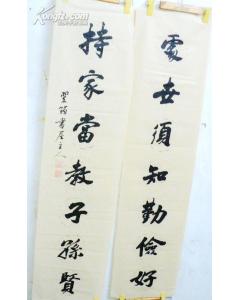 處世須知勤儉好
持家當教子孫賢
書屋主人